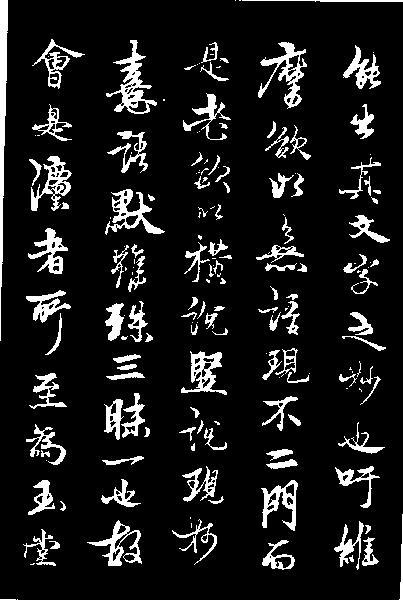 能出其文字之妙也吁維
摩欲以無語現不二門而
是老欲以橫說竪說現妙
意語默雖殊三昧一也故
會是灋者所至為玉堂